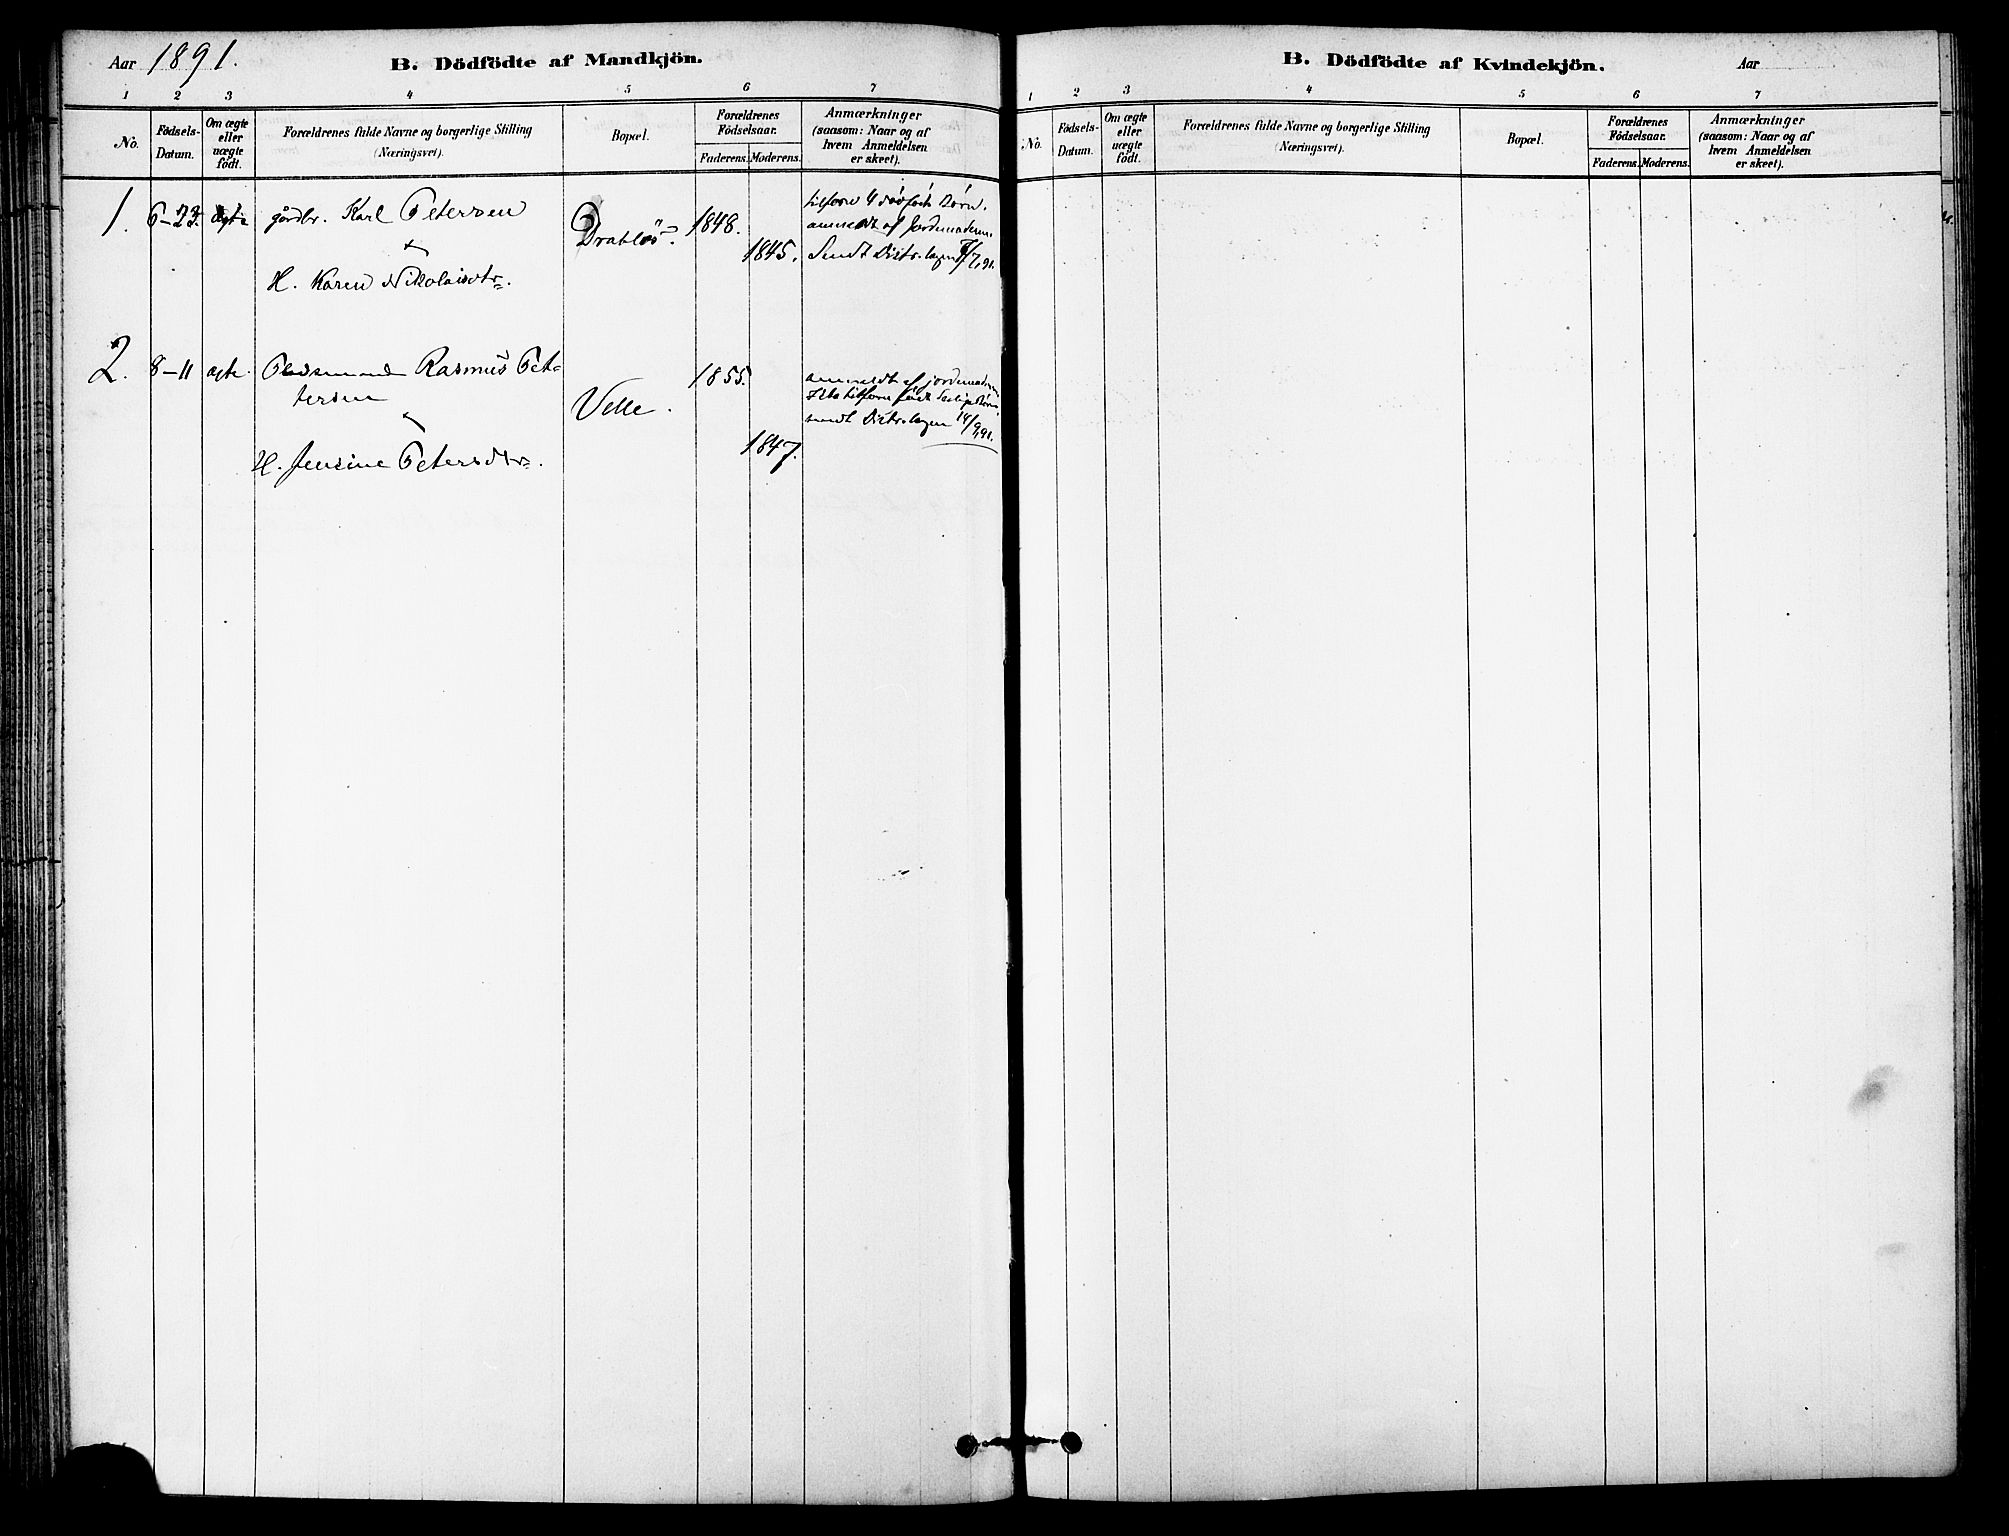 Aar 1891.
B. Dödfödte af Mandkjön.
1 2 3 4 5 6 7
No.
Födsels-
Datum.
Om ægte
eller
uægte
födt.
Forældrenes fulde Navne og borgerlige Stilling
(Næringsvei).
Bopæl.
Forældrenes
Födselsaar.
Faderens. Moderens.
Anmærkninger
(saasom: Naar og af
hvem Anmeldelsen
er skeet).
1.
6-23.
ægte
gårdbr. Karl Petersen
H. Karen Nikolaisdtr.
Drabløs
1848.
1845.
tilforn 4 dødfødt Børn.
anmeldt af Jordemoderen
Sendt Distr.lægen 7/7.91.
2.
8-11
ægte.
Pladsmand Rasmus Pet-
tersen
H. Jensine Petersdtr.
Velle.
1855.
1847.
anmeldt af jordemoderen
tilforn født
sendt Distr.lægen 14/9.91.
B. Dödfödte af Kvindekjön.
Aar
1 2 3 4 5 6 7
No.
Födsels-
Datum.
Om ægte
eller
uægte
födt.
Forældrenes fulde Navne og borgerlige Stilling
(Næringsvei).
Bopæl.
Forældrenes
Födselsaar.
Faderens. Moderens.
Anmærkninger
(saasom: Naar og af
hvem Anmeldelsen
er skeet).